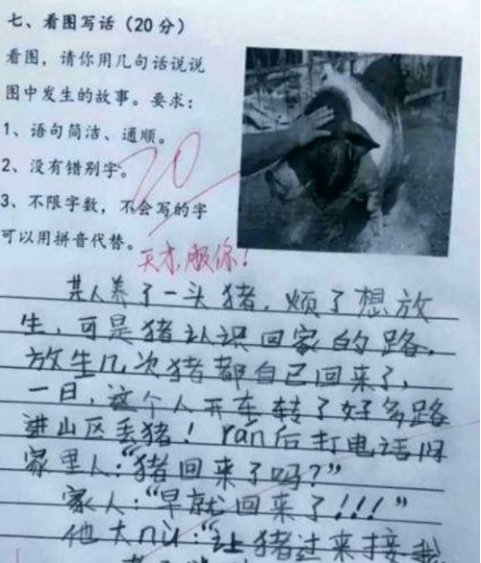 七、看图写话（20分）
看图，请你用几句话说说
图中发生的故事。要求：
1、语句简洁、通顺。
2、没有错别字。
3、不限字数，不会写的字
可以用拼音代替。
20
天才，服你！
某人养了一头猪，烦了想放
生，可是猪认识回家的路，
放生几次猪都自己回来了，
一日，这个人开车转了好多路
进山区丢猪！rán后打电话问
家里人：“猪回来了吗？”
家人：“早就回来了!!!”
他大nù：“让猪过来接我